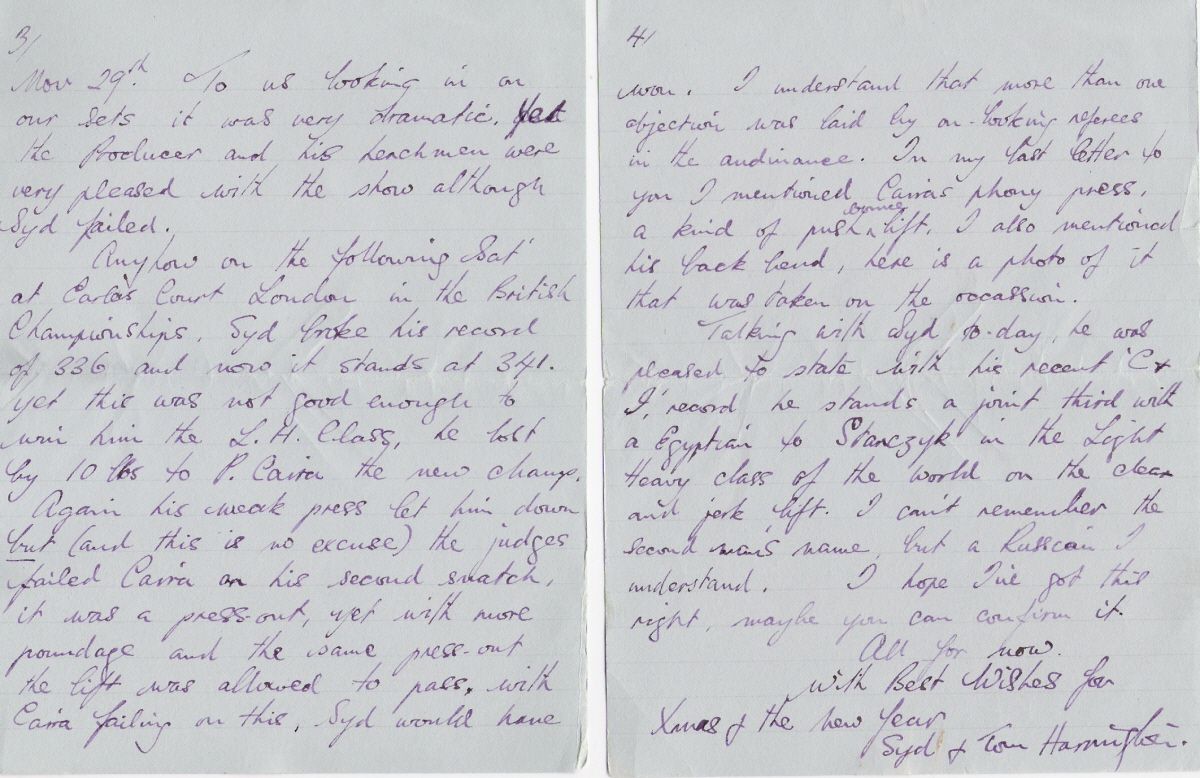 3/
Nov 29th To us looking in on
our sets it was very dramatic. Yet
the Producer and his henchmen were
very pleased with the show although
Syd failed.
Anyhow on the following Sat
at Earls Court London in the British
Championships, Syd broke his record
of 336 and now it stands at 341.
yet this was not good enough to
win him the L.H. Class, he lost
by 10 lbs to P. Caira the new champ.
Again his weak press let him down
but (and this is no excuse) the judges
failed Caira on his second snatch,
it was a press-out, yet with more
poundage and the same press-out
the lift was allowed to pass. with
Caira failing on this, Syd would have
4/
won. I understand that more than one
objection was laid by on-looking referees
in the audinance. In my last letter to
you I mentioned Cairas phony press,
a kind of push bounce lift. I also mentioned
his back bend, here is a photo of it
that was taken on the occassion.
Talking with Syd to-day, he was
pleased to state with his recent 'C &
J,' record he stands a joint third with
a Egyptian to Stanczyk in the Light
Heavy class of the world on the clean
and jerk lift. I can't remember the
second man's name, but a Russian I
understand. I hope I've got this
right, maybe you can confirm it.
All for now.
With Best Wishes for
Xmas & the New Year
Syd & Tom Harrington.